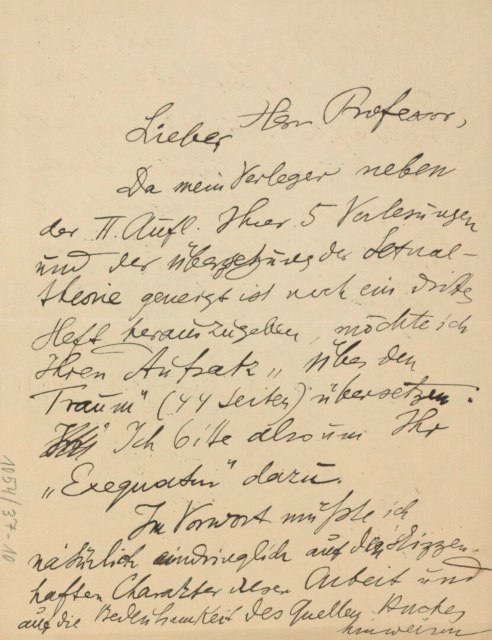 Lieber Herr Professor,
Da mein Verleger neben
der II. Aufl. Ihrer 5 Vorlesungen
und der Übersetzung der Sexual-
theorie geneigt ist noch ein drittes
Heft herauszugeben, möchte ich
Ihren Aufsatz „Über den
Traum" (44 Seiten) übersetzen.
Ich bitte also um Ihr
„Exequatur" dazu.
Im Vorwort müßte ich
natürlich eindringlich auf den skizzen-
haften Charakter dieser Arbeit und
auf die Bedeutsamkeit des Quellen Buches
hinweisen
1054/37-10